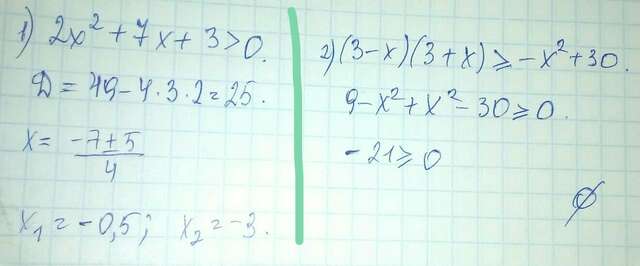 1) 2x² + 7x + 3 > 0.
D = 49 - 4 · 3 · 2 = 25.
x = (-7 ± 5) / 4
x₁ = -0,5; x₂ = -3.
2) (3 - x)(3 + x) ⩾ -x² + 30.
9 - x² + x² - 30 ⩾ 0.
-21 ⩾ 0
∅